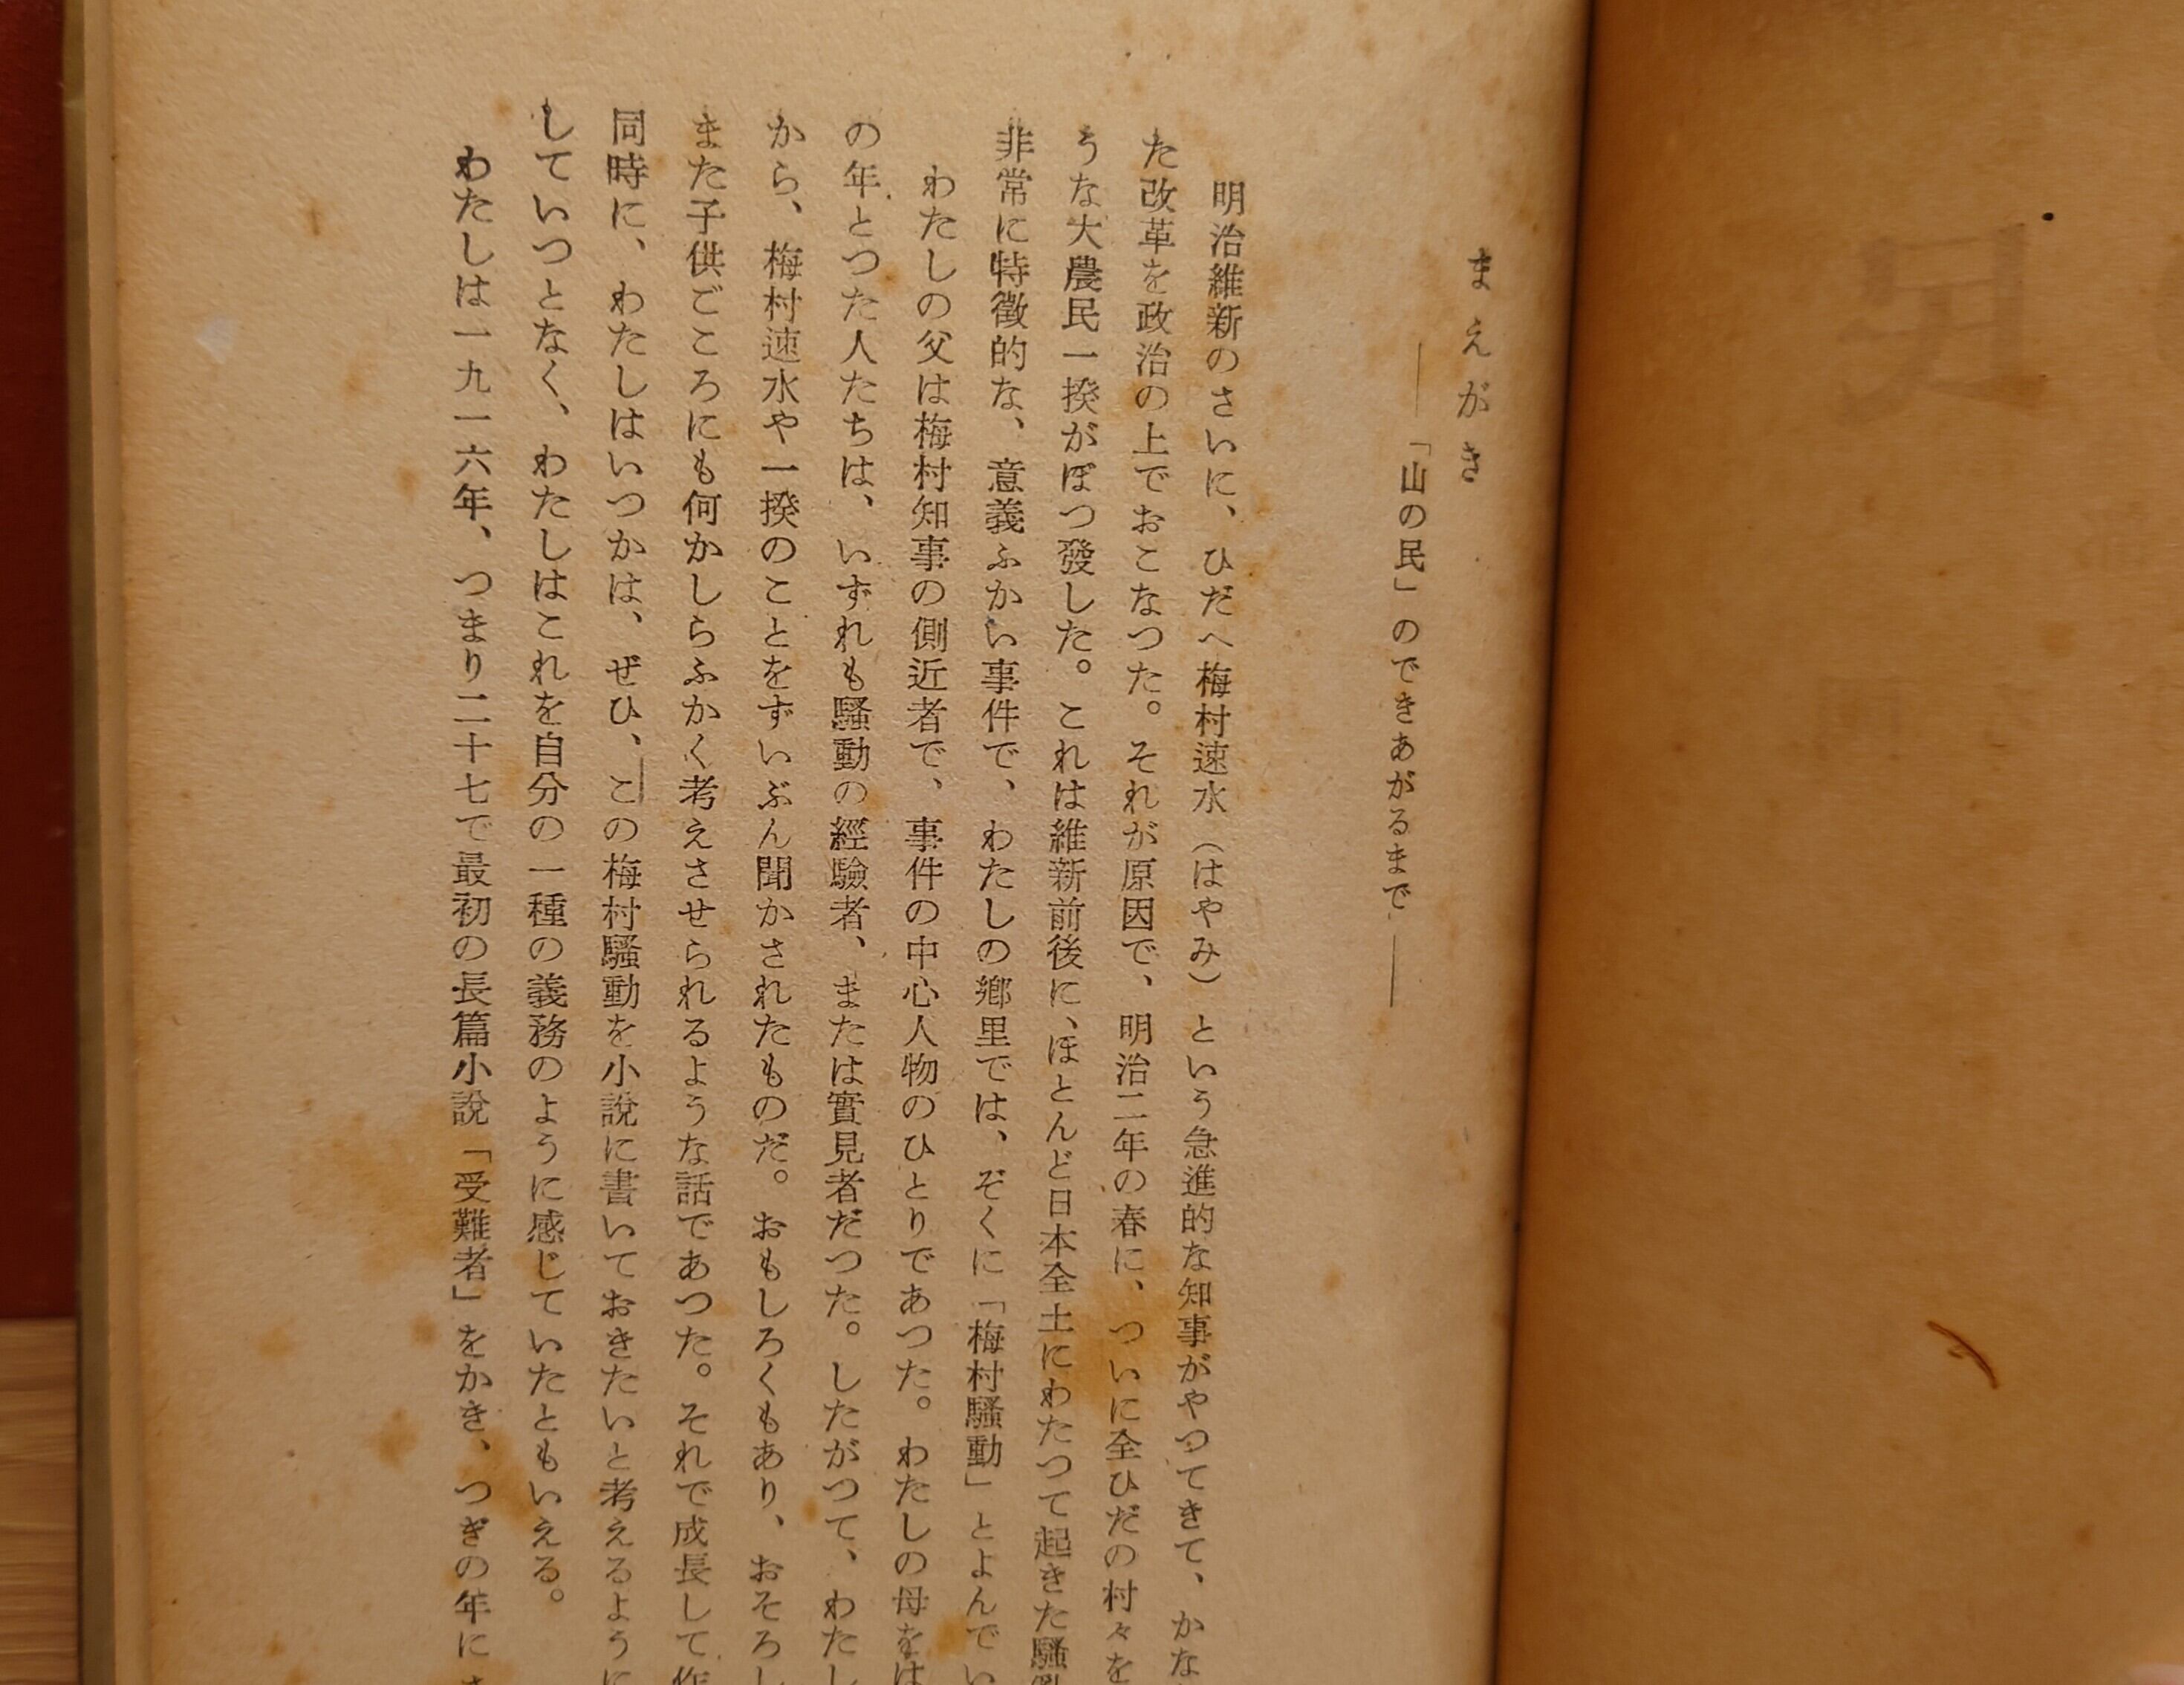 まえがき
――「山の民」のできあがるまで――
明治維新のさいに、ひだへ梅村速水（はやみ）という急進的な知事がやつてきて、かな
た改革を政治の上でおこなつた。それが原因で、明治二年の春に、ついに全ひだの村々を
うな大農民一揆がぼつ發した。これは維新前後に、ほとんど日本全土にわたつて起きた騷
非常に特徴的な、意義ふかい事件で、わたしの鄕里では、ぞくに「梅村騷動」とよんでい
わたしの父は梅村知事の側近者で、事件の中心人物のひとりであつた。わたしの母をは
の年とつた人たちは、いずれも騷動の經驗者、または實見者だつた。したがつて、わたし
から、梅村速水や一揆のことをずいぶん聞かされたものだ。おもしろくもあり、おそろし
また子供ごころにも何かしらふかく考えさせられるような話であつた。それで成長して作
同時に、わたしはいつかは、ぜひ、この梅村騷動を小說に書いておきたいと考えるように
していつとなく、わたしはこれを自分の一種の義務のように感じていたともいえる。
わたしは一九一六年、つまり二十七で最初の長篇小說「受難者」をかき、つぎの年に